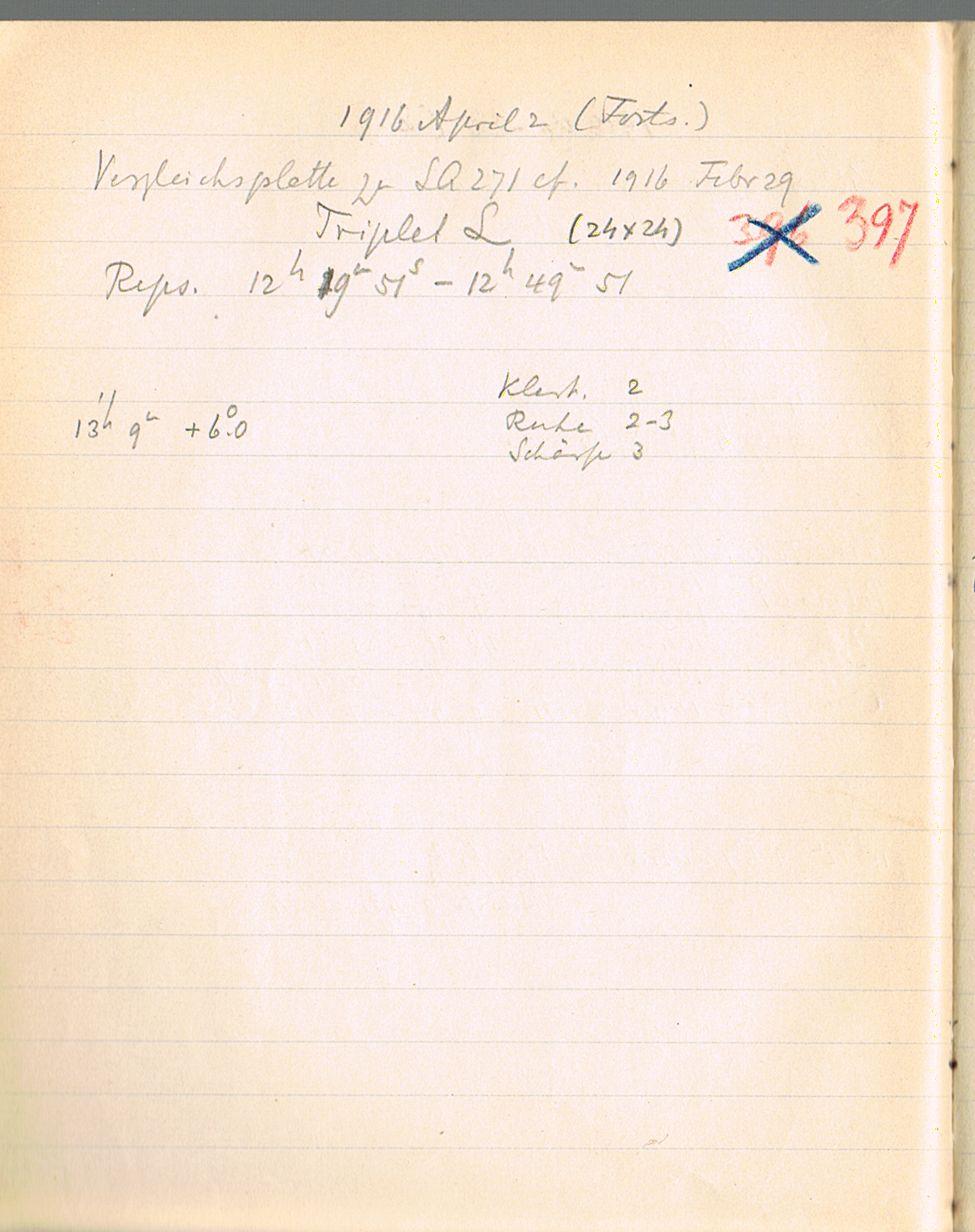 1916 April 2 (Forts.)
Vergleichsplatte zu SA 271 cf. 1916 Febr 29
Triplet L (24x24) 396 397
Reps. 12h 19m 51s - 12h 49m 51
13h 9m +6°.0
Klarh. 2
Ruhe 2-3
Schärfe 3